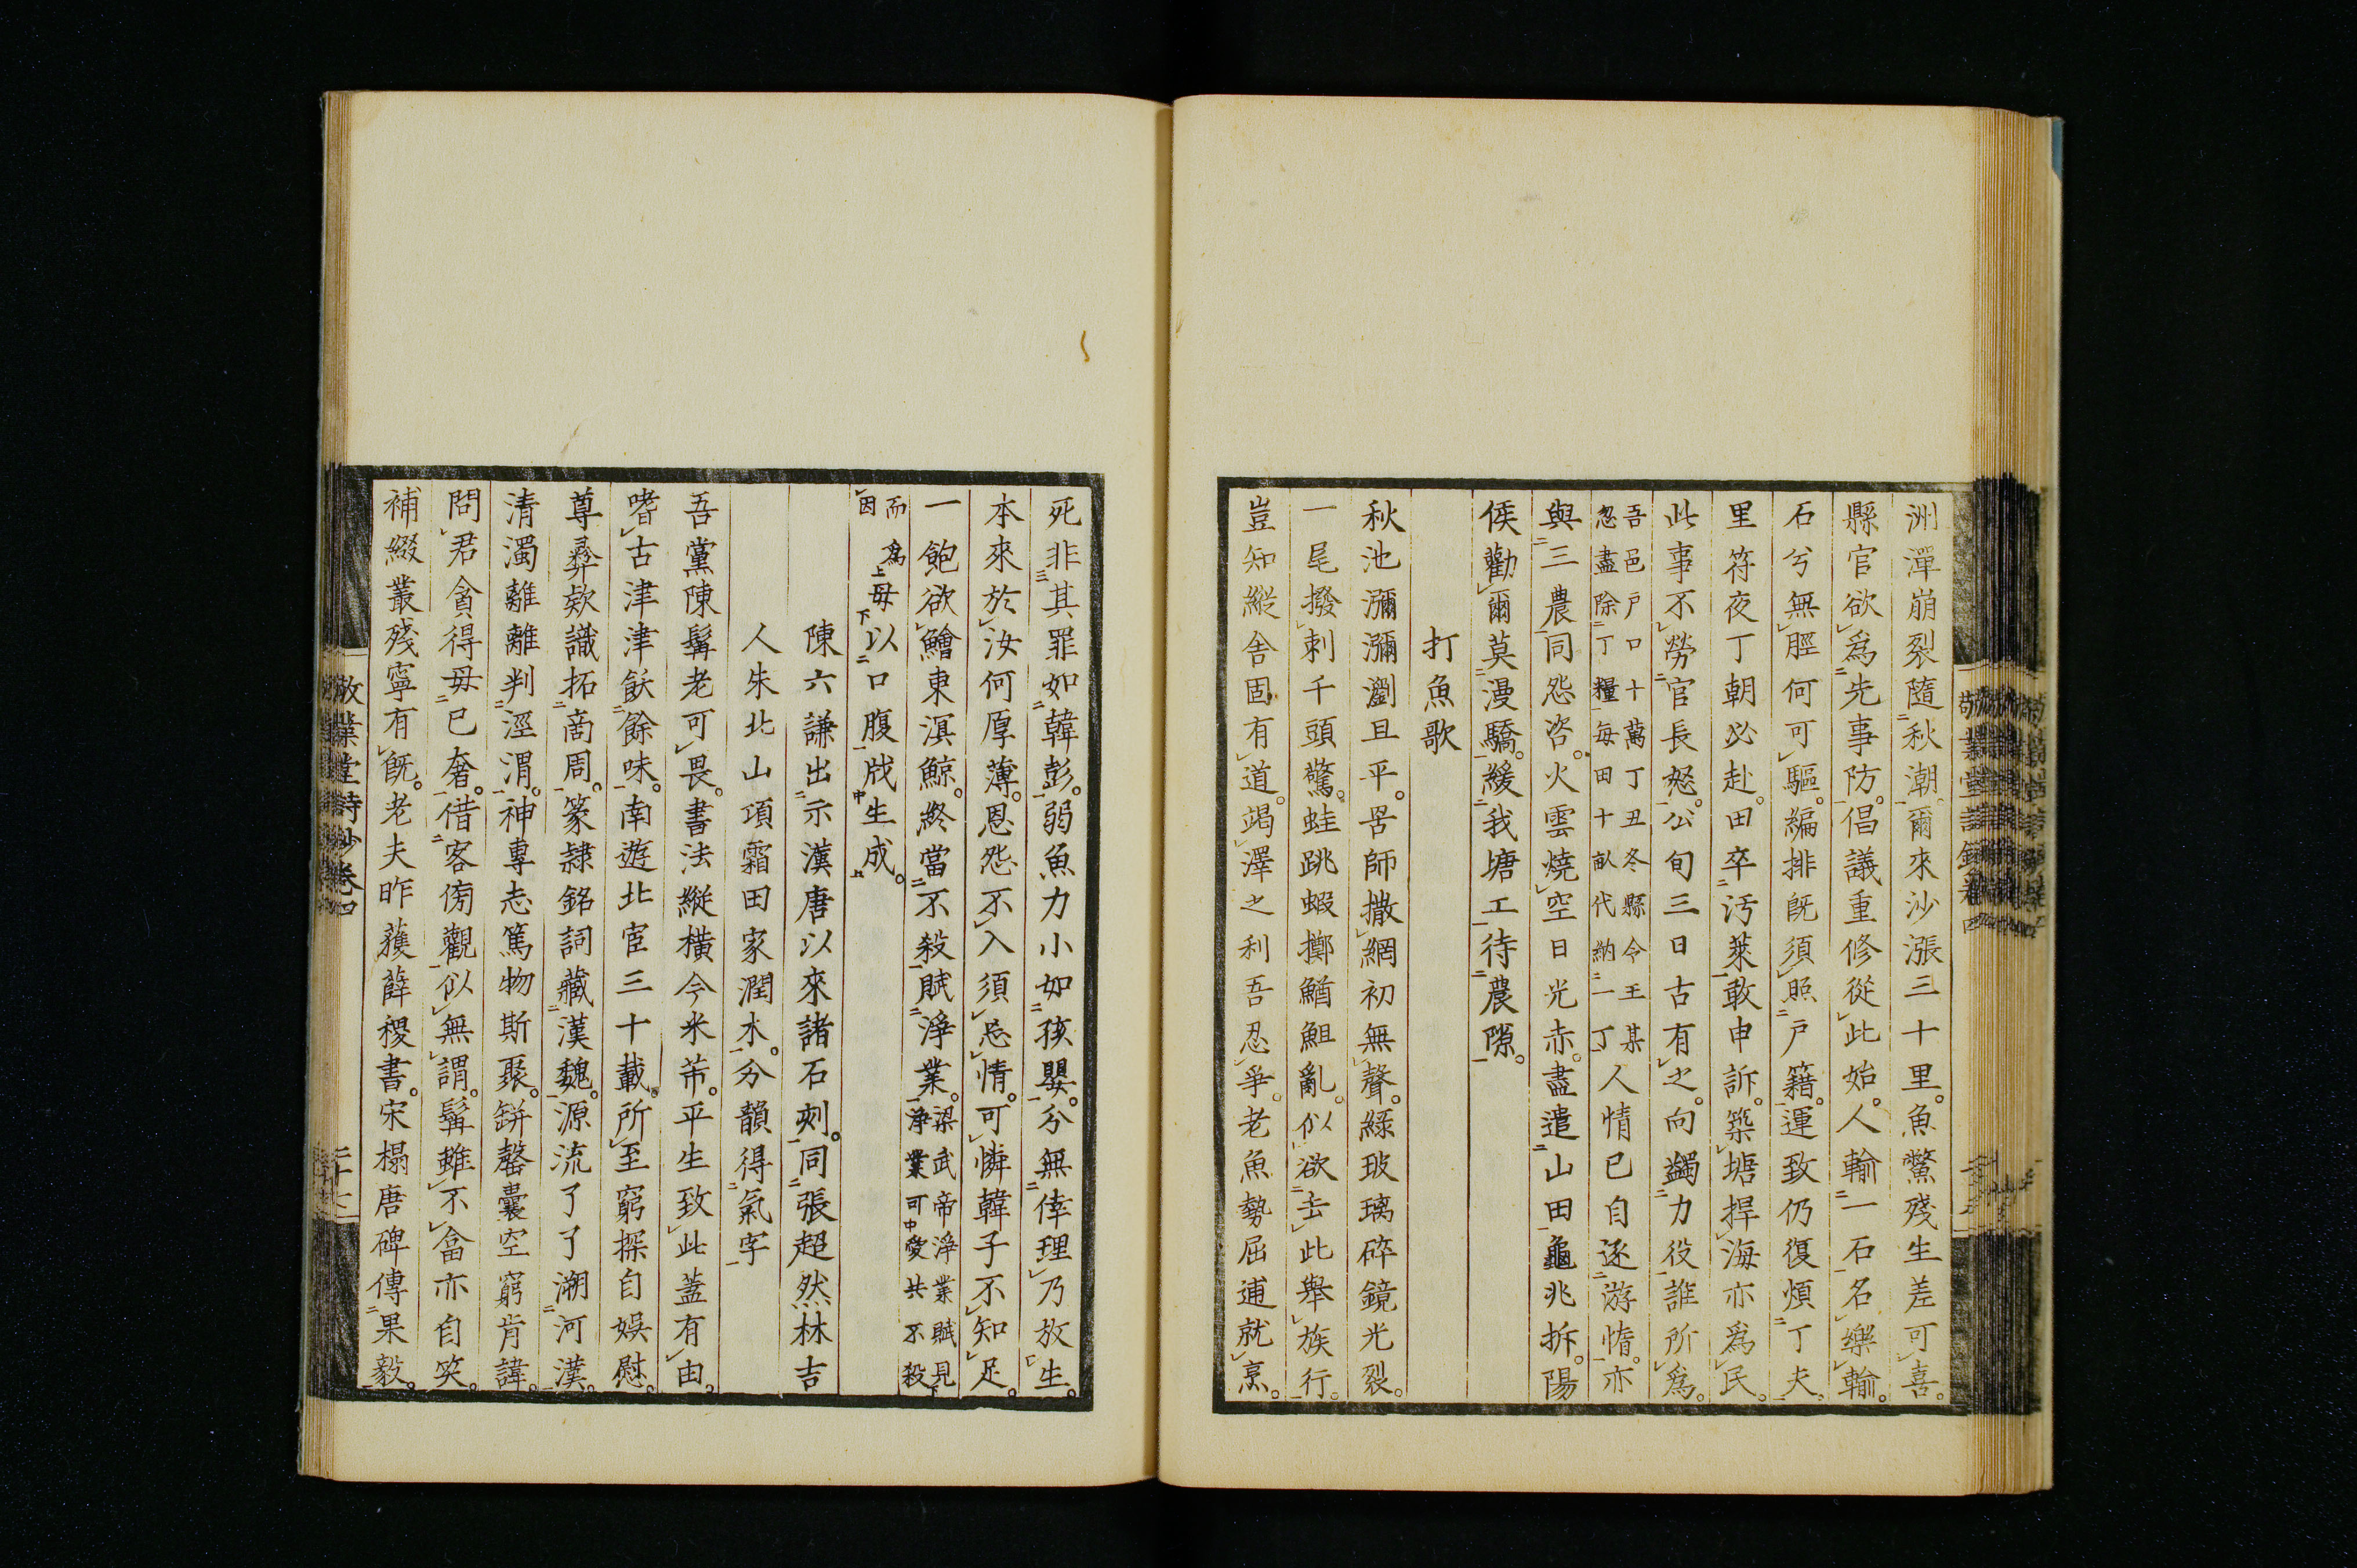 洲潬崩裂隨秋潮爾來沙漲三十里魚鱉殘生差可喜
縣官欲爲先事防倡議重修從此始人輸一石名樂輸
石兮無脛何可驅編排旣須照戶籍運致仍復煩丁夫
里符夜丁朝必赴田卒汚萊敢申訴築塘捍海亦爲民
此事不勞官長怒公旬三日古有之向蠲力役誰所爲
吾邑戶口十萬丁丑冬縣令王某
忽盡除丁糧每田十畝代納一丁
人情已自逐游惰亦
與三農同怨咨火雲燒空日光赤盡遣山田龜兆拆陽
侯勸爾莫漫驕緩我塘工待農隙
打魚歌
秋池瀰瀰瀏且平罟師撒網初無聲綠玻璃碎鏡光裂
一尾撥刺千頭驚蛙跳蝦擲鰌䱉亂似欲去此舉族行
豈知縱舍固有道竭澤之利吾忍爭老魚勢屈逋就烹
死非其罪如韓彭弱魚力小如孩嬰分無倖理乃放生
本來於汝何厚薄恩怨不入須忘情可憐韓子不知足
一飽欲鱠東溟鯨終當不殺賦淨業
梁武帝淨業賦見
淨業可愛共不殺
而
因
爲毋以口腹戕生成
陳六謙出示漢唐以來諸石刻同張超然林吉
人朱北山項霜田家潤木分韻得氣字
吾黨陳髯老可畏書法縱橫今米芾平生致此蓋有由
嗜古津津飫餘味南遊北宦三十載所至窮探自娛慰
尊彝欵識拓商周篆隷銘詞藏漢魏源流了了溯河漢
清濁離離判涇渭神專志篤物斯聚缾罄囊空窮肯諱
問君貪得毋已奢借客傍觀似無謂髯雖不畣亦自笑
補綴叢殘寧有旣老夫昨蒦薛稷書宋榻唐碑傳果毅
敬業堂詩鈔卷四